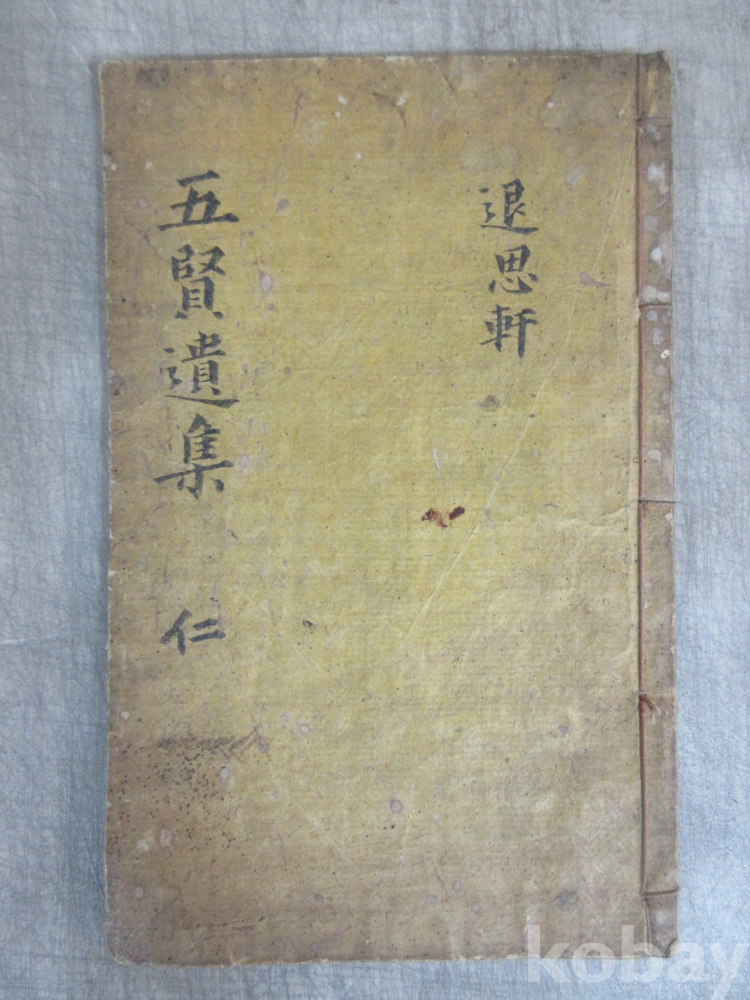 退思軒
五賢遺集 仁
kobay